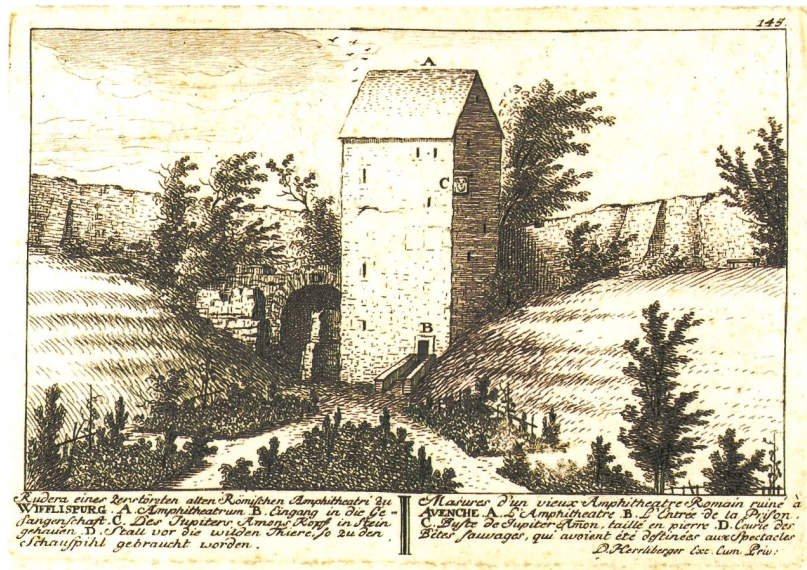 145.
A
C
B
Rudera eines Zerstörzten alten Römischen Amphitheatri zu
WIFFLISPURG. A. Amphitheatrum B. Eingang in die Ge-
fangenschaft. C. Des Jupiters Amons Kopf in Stein
gehauen D. Stall vor die wilden Thiere, so zu den
Schauspihl gebraucht worden.
Masures d'un vieux Amphitheatre Romain ruiné à
AVENCHE. A. L'Amphitheatre. B. L'Entrée de la Prison.
C. Byste de Jupiter Amon, taillé en pierre. D. Ecurie des
Bêtes sauvages, qui avoient été destinées aux Spectacles
D. Herrliberger Exc. Cum Priv: